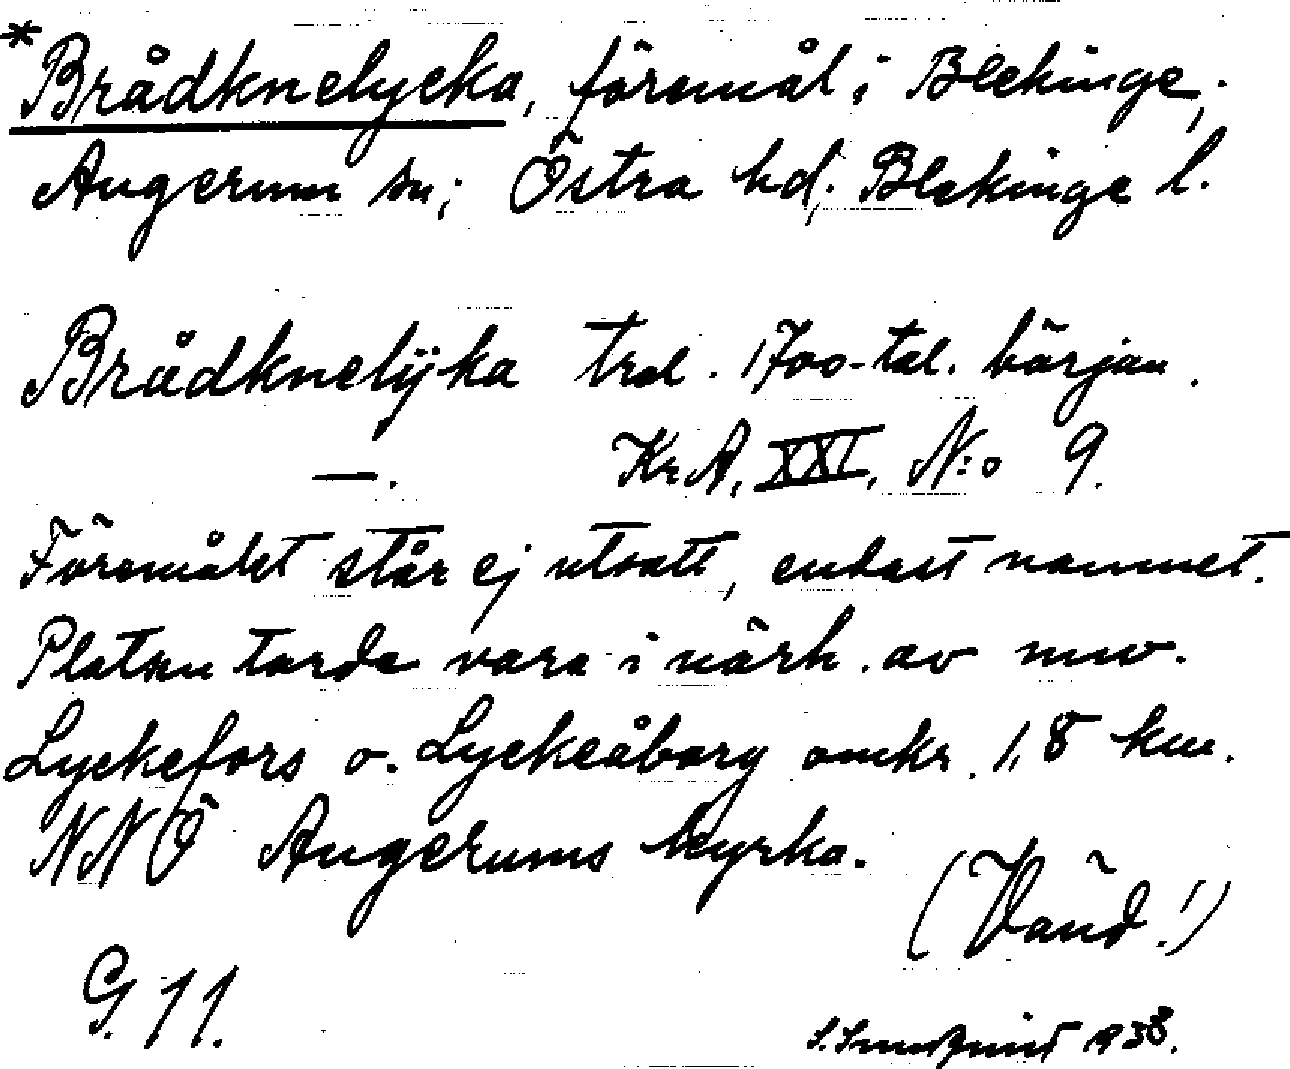 *Brådknelycka, föremål i Blekinge,
Augerum sn; Östra hd. Blekinge l.
Brådknelÿka trol. 1700-tal. början.
—. Kr A, XXI, N:o 9.
Föremålet står ej utsatt, endast namnet.
Platsen torde vara i närh. av nuv.
Lyckefors o. Lyckeåborg omkr. 1,8 km.
NNÖ Augerums kyrka.
(Vänd!)
G. 11.
1938.